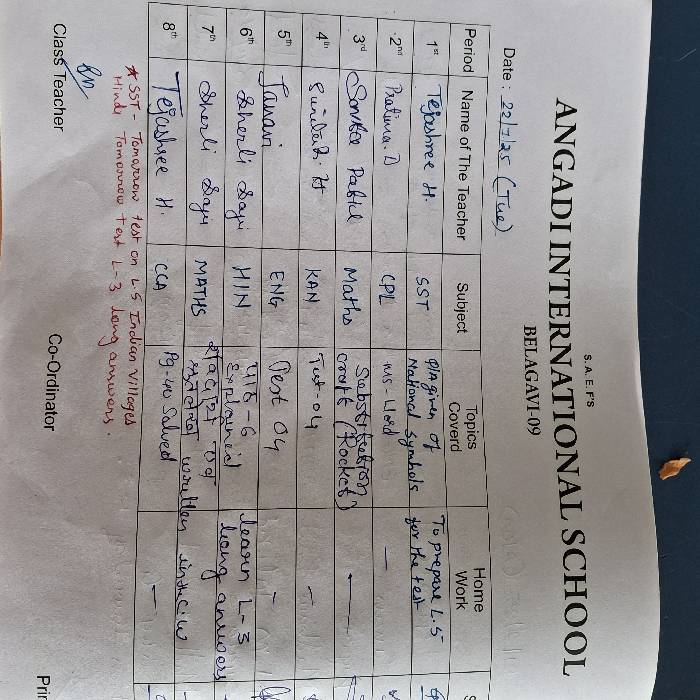 S.A.E.F'S
ANGADI INTERNATIONAL SCHOOL
BELAGAVI-09
Date : 22/7/25 (Tue)
Period Name of The Teacher Subject Topics Coverd Home Work
1st Tejashree H. SST Q/A given of National Symbols To prepare L.5 for the test
2nd Pratima. D CPL Ms-Word —
3rd Patil Maths Substitution craft (Rocket) —
4th H KAN Tut-04 –
5th Janavi ENG Test 04 –
6th Sherli Saji HIN explained learn L-3 long answers
7th Sherli Saji MATHS written in the C.W
8th Tejashree H. CCA Pg.40 Solved –
* SST - Tomorrow test on L5 Indian Villages
Hindi Tomorrow test L-3 long answers.
Class Teacher Co-Ordinator Prin